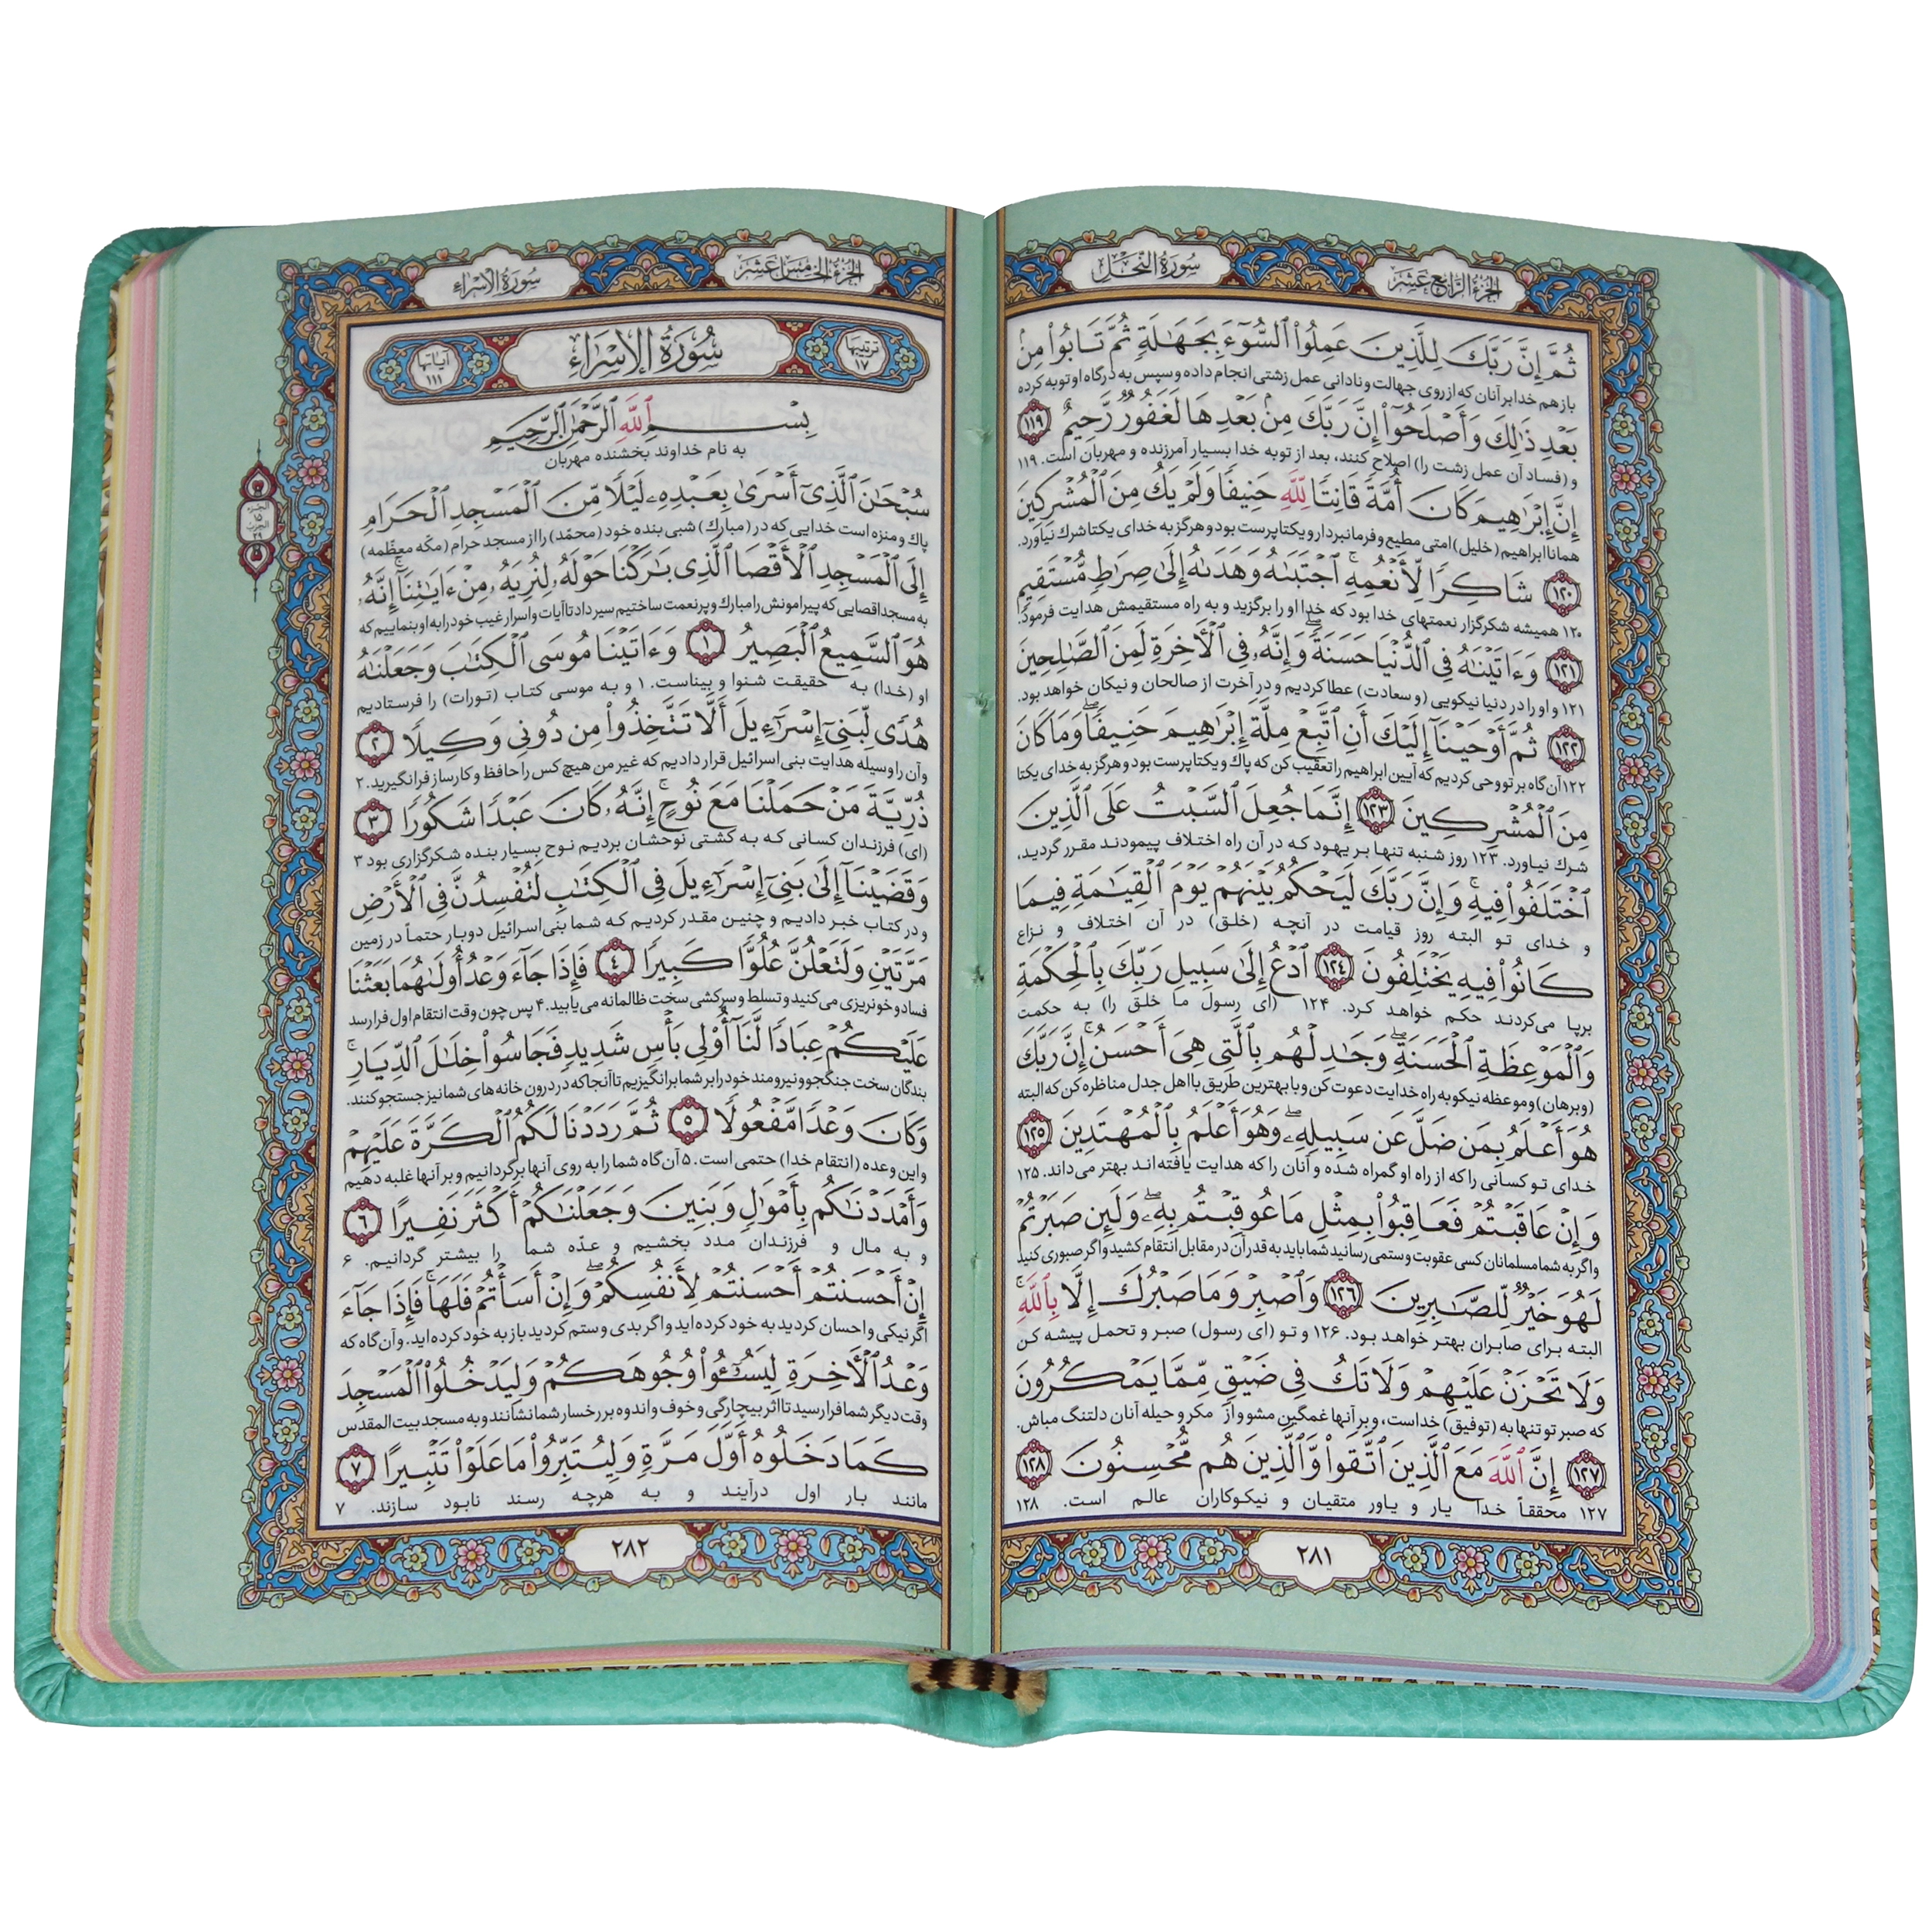 الجزء الرابع عشر
سورة النحل
ثُمَّ إِنَّ رَبَّكَ لِلَّذِينَ عَمِلُوا۟ ٱلسُّوٓءَ بِجَهَٰلَةٍ ثُمَّ تَابُوا۟ مِنۢ
باز هم خدا بر آنان که از روی جهالت و نادانی عمل زشتی انجام داده و سپس به درگاه او توبه کرده
بَعْدِ ذَٰلِكَ وَأَصْلَحُوٓا۟ إِنَّ رَبَّكَ مِنۢ بَعْدِهَا لَغَفُورٌ رَّحِيمٌ ١١٩
و (فساد آن عمل زشت را) اصلاح کنند، بعد از توبه خدا بسیار آمرزنده و مهربان است. ۱۱۹
إِنَّ إِبْرَٰهِيمَ كَانَ أُمَّةً قَانِتًا لِّلَّهِ حَنِيفًا وَلَمْ يَكُ مِنَ ٱلْمُشْرِكِينَ
همانا ابراهیم (خلیل) امتی مطیع و فرمانبردار و یکتاپرست بود و هرگز به خدای یکتا شرك نیاورد.
١٢٠ شَاكِرًا لِّأَنْعُمِهِ ۚ ٱجْتَبَىٰهُ وَهَدَىٰهُ إِلَىٰ صِرَٰطٍ مُّسْتَقِيمٍ
۱۲۰ همیشه شکرگزار نعمتهای خدا بود که خدا او را برگزید و به راه مستقیمش هدایت فرمود.
١٢١ وَءَاتَيْنَٰهُ فِى ٱلدُّنْيَا حَسَنَةً ۖ وَإِنَّهُۥ فِى ٱلْـَٔاخِرَةِ لَمِنَ ٱلصَّٰلِحِينَ
۱۲۱ و او را در دنیا نیکویی (و سعادت) عطا کردیم و در آخرت از صالحان و نیکان خواهد بود.
١٢٢ ثُمَّ أَوْحَيْنَآ إِلَيْكَ أَنِ ٱتَّبِعْ مِلَّةَ إِبْرَٰهِيمَ حَنِيفًا ۖ وَمَا كَانَ
۱۲۲ آن گاه بر تو وحی کردیم که آیین ابراهیم را تعقیب کن که پاك و یکتاپرست بود و هرگز به خدای یکتا
مِنَ ٱلْمُشْرِكِينَ ١٢٣ إِنَّمَا جُعِلَ ٱلسَّبْتُ عَلَى ٱلَّذِينَ
شرك نیاورد. ۱۲۳ روز شنبه تنها بر یهود که در آن راه اختلاف پیمودند مقرر گردید،
ٱخْتَلَفُوا۟ فِيهِ ۚ وَإِنَّ رَبَّكَ لَيَحْكُمُ بَيْنَهُمْ يَوْمَ ٱلْقِيَٰمَةِ فِيمَا
و خدای تو البته روز قیامت در آنچه (خلق) در آن اختلاف و نزاع
كَانُوا۟ فِيهِ يَخْتَلِفُونَ ١٢٤ ٱدْعُ إِلَىٰ سَبِيلِ رَبِّكَ بِٱلْحِكْمَةِ
برپا می‌کردند حکم خواهد کرد. ۱۲۴ (ای رسول ما خلق را) به حکمت
وَٱلْمَوْعِظَةِ ٱلْحَسَنَةِ ۖ وَجَٰدِلْهُم بِٱلَّتِى هِىَ أَحْسَنُ ۚ إِنَّ رَبَّكَ
(و برهان) و موعظه نیکو به راه خدایت دعوت کن و با بهترین طریق با اهل جدل مناظره کن که البته
هُوَ أَعْلَمُ بِمَن ضَلَّ عَن سَبِيلِهِۦ ۖ وَهُوَ أَعْلَمُ بِٱلْمُهْتَدِينَ ١٢٥
خدای تو کسانی را که از راه او گمراه شده و آنان را که هدایت یافته‌اند بهتر می‌داند. ۱۲۵
وَإِنْ عَاقَبْتُمْ فَعَاقِبُوا۟ بِمِثْلِ مَا عُوقِبْتُم بِهِۦ ۖ وَلَئِن صَبَرْتُمْ
و اگر به شما مسلمانان کسی عقوبت و ستمی رسانید شما باید به قدر آن در مقابل انتقام کشید و اگر صبوری کنید
لَهُوَ خَيْرٌ لِّلصَّٰبِرِينَ ١٢٦ وَٱصْبِرْ وَمَا صَبْرُكَ إِلَّا بِٱللَّهِ ۚ
البته برای صابران بهتر خواهد بود. ۱۲۶ و تو (ای رسول) صبر و تحمل پیشه کن
وَلَا تَحْزَنْ عَلَيْهِمْ وَلَا تَكُ فِى ضَيْقٍ مِّمَّا يَمْكُرُونَ
که صبر تو تنها به (توفیق) خداست، و بر آنها غمگین مشو و از مکر و حیله آنان دلتنگ مباش.
١٢٧ إِنَّ ٱللَّهَ مَعَ ٱلَّذِينَ ٱتَّقَوا۟ وَّٱلَّذِينَ هُم مُّحْسِنُونَ ١٢٨
۱۲۷ محققاً خدا یار و یاور متقیان و نیکوکاران عالم است. ۱۲۸
٢٨١
الجزء الخامس عشر
سورة الإسراء
ترتيبها ١٧
سُورَةُ الإِسْرَاء
آياتها ١١١
بِسْمِ ٱللَّهِ ٱلرَّحْمَٰنِ ٱلرَّحِيمِ
به نام خداوند بخشنده مهربان
سُبْحَٰنَ ٱلَّذِىٓ أَسْرَىٰ بِعَبْدِهِۦ لَيْلًا مِّنَ ٱلْمَسْجِدِ ٱلْحَرَامِ
پاك و منزه است خدایی که در (مبارك) شبی بنده خود (محمّد) را از مسجد حرام (مکّه معظّمه)
إِلَى ٱلْمَسْجِدِ ٱلْأَقْصَا ٱلَّذِى بَٰرَكْنَا حَوْلَهُۥ لِنُرِيَهُۥ مِنْ ءَايَٰتِنَآ ۚ إِنَّهُۥ
به مسجد اقصایی که پیرامونش را مبارك و پر نعمت ساختیم سیر داد تا آیات و اسرار غیب خود را به او بنماییم که
هُوَ ٱلسَّمِيعُ ٱلْبَصِيرُ ١ وَءَاتَيْنَا مُوسَى ٱلْكِتَٰبَ وَجَعَلْنَٰهُ
او (خدا) به حقیقت شنوا و بیناست. ۱ و به موسی کتاب (تورات) را فرستادیم
هُدًى لِّبَنِىٓ إِسْرَٰٓءِيلَ أَلَّا تَتَّخِذُوا۟ مِن دُونِى وَكِيلًا ٢
و آن را وسیله هدایت بنی اسرائیل قرار دادیم که غیر من هیچ کس را حافظ و کارساز فرانگیرید. ۲
ذُرِّيَّةَ مَنْ حَمَلْنَا مَعَ نُوحٍ ۚ إِنَّهُۥ كَانَ عَبْدًا شَكُورًا ٣
(ای) فرزندان کسانی که به کشتی نوحشان بردیم نوح بسیار بنده شکرگزاری بود ۳
وَقَضَيْنَآ إِلَىٰ بَنِىٓ إِسْرَٰٓءِيلَ فِى ٱلْكِتَٰبِ لَتُفْسِدُنَّ فِى ٱلْأَرْضِ
و در کتاب خبر دادیم و چنین مقدر کردیم که شما بنی‌اسرائیل دوبار حتماً در زمین
مَرَّتَيْنِ وَلَتَعْلُنَّ عُلُوًّا كَبِيرًا ٤ فَإِذَا جَآءَ وَعْدُ أُولَىٰهُمَا بَعَثْنَا
فساد و خونریزی می‌کنید و تسلط و سرکشی سخت ظالمانه می‌یابید. ۴ پس چون وقت انتقام اول فرا رسد
عَلَيْكُمْ عِبَادًا لَّنَآ أُو۟لِى بَأْسٍ شَدِيدٍ فَجَاسُوا۟ خِلَٰلَ ٱلدِّيَارِ ۚ
بندگان سخت جنگجو و نیرومند خود را بر شما برانگیزیم تا آنجا که در درون خانه های شما نیز جستجو کنند.
وَكَانَ وَعْدًا مَّفْعُولًا ٥ ثُمَّ رَدَدْنَا لَكُمُ ٱلْكَرَّةَ عَلَيْهِمْ
و این وعده (انتقام خدا) حتمی است. ۵ آن گاه شما را به روی آنها برگردانیم و بر آنها غلبه دهیم
وَأَمْدَدْنَٰكُم بِأَمْوَٰلٍ وَبَنِينَ وَجَعَلْنَٰكُمْ أَكْثَرَ نَفِيرًا ٦
و به مال و فرزندان مدد بخشیم و عدّه شما را بیشتر گردانیم. ۶
إِنْ أَحْسَنتُمْ أَحْسَنتُمْ لِأَنفُسِكُمْ ۖ وَإِنْ أَسَأْتُمْ فَلَهَا ۚ فَإِذَا جَآءَ
اگر نیکی و احسان کردید به خود کرده اید و اگر بدی و ستم کردید باز به خود کرده اید. و آن گاه که
وَعْدُ ٱلْـَٔاخِرَةِ لِيَسُـۥٓـُٔوا۟ وُجُوهَكُمْ وَلِيَدْخُلُوا۟ ٱلْمَسْجِدَ
وقت دیگر شما فرا رسید تا اثر بیچارگی و خوف و اندوه بر رخسار شما نشانند و به مسجد بیت المقدس
كَمَا دَخَلُوهُ أَوَّلَ مَرَّةٍ وَلِيُتَبِّرُوا۟ مَا عَلَوْا۟ تَتْبِيرًا ٧
مانند بار اول درآیند و به هرچه رسند نابود سازند. ۷
الجزء
١٥
الحزب
٢٩
٢٨٢